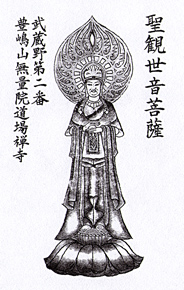 聖観世音菩薩
武蔵野第二番
豊嶋山無量院道場禅寺